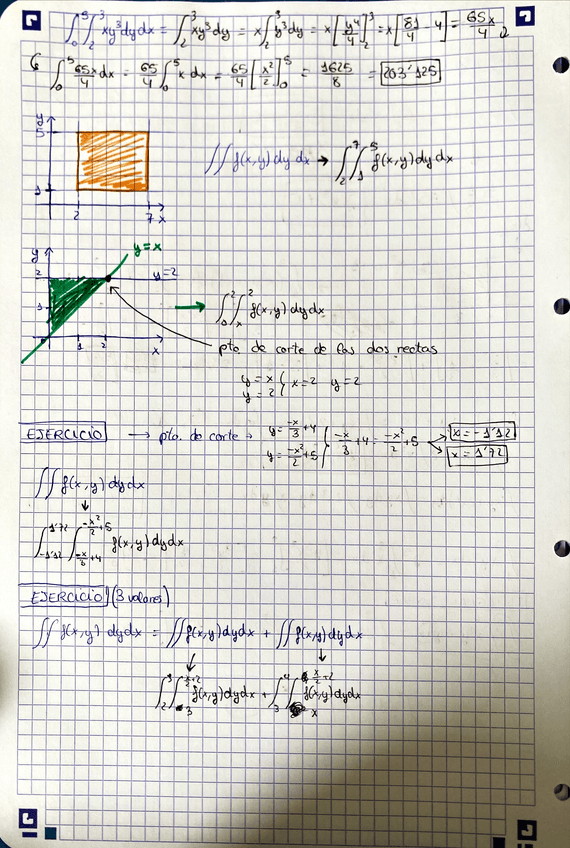 ∫₀⁵∫₂³ xy³dydx = ∫₂³ xy³dy = x∫₂³ y³dy = x[y⁴/4]₂³ = x[81/4 - 4] = 65x/4
∫₀⁵ 65x/4 dx = 65/4 ∫₀⁵ x dx = 65/4 [x²/2]₀⁵ = 1625/8 = 203'125
y
5
1
2 7 x
∬ f(x,y) dy dx → ∫₂⁷∫₁⁵ f(x,y) dy dx
y=x
y
2 y=2
1
1 2 x
→ ∫₀²∫ₓ² f(x,y) dy dx
pto. de corte de las dos rectas
y = x
y = 2 } x=2 y=2
EJERCICIO → pto. de corte → y = -x/3 + 4
y = -x²/2 + 5 } -x/3 + 4 = -x²/2 + 5
x = -1'12
x = 1'72
∬ f(x,y) dy dx
↓
∫_{-1'12}^{1'72} ∫_{-x/3+4}^{-x²/2+5} f(x,y) dy dx
EJERCICIO (3 valores)
∬ f(x,y) dy dx = ∬ f(x,y) dy dx + ∬ f(x,y) dy dx
↓ ↓
∫₂³∫₃^{x/2+2} f(x,y) dy dx + ∫₃⁴∫ₓ^{x/2+2} f(x,y) dy dx